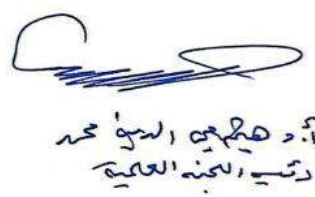 أ.د هيثم محي الدين محمد
رئيس اللجنة العلمية